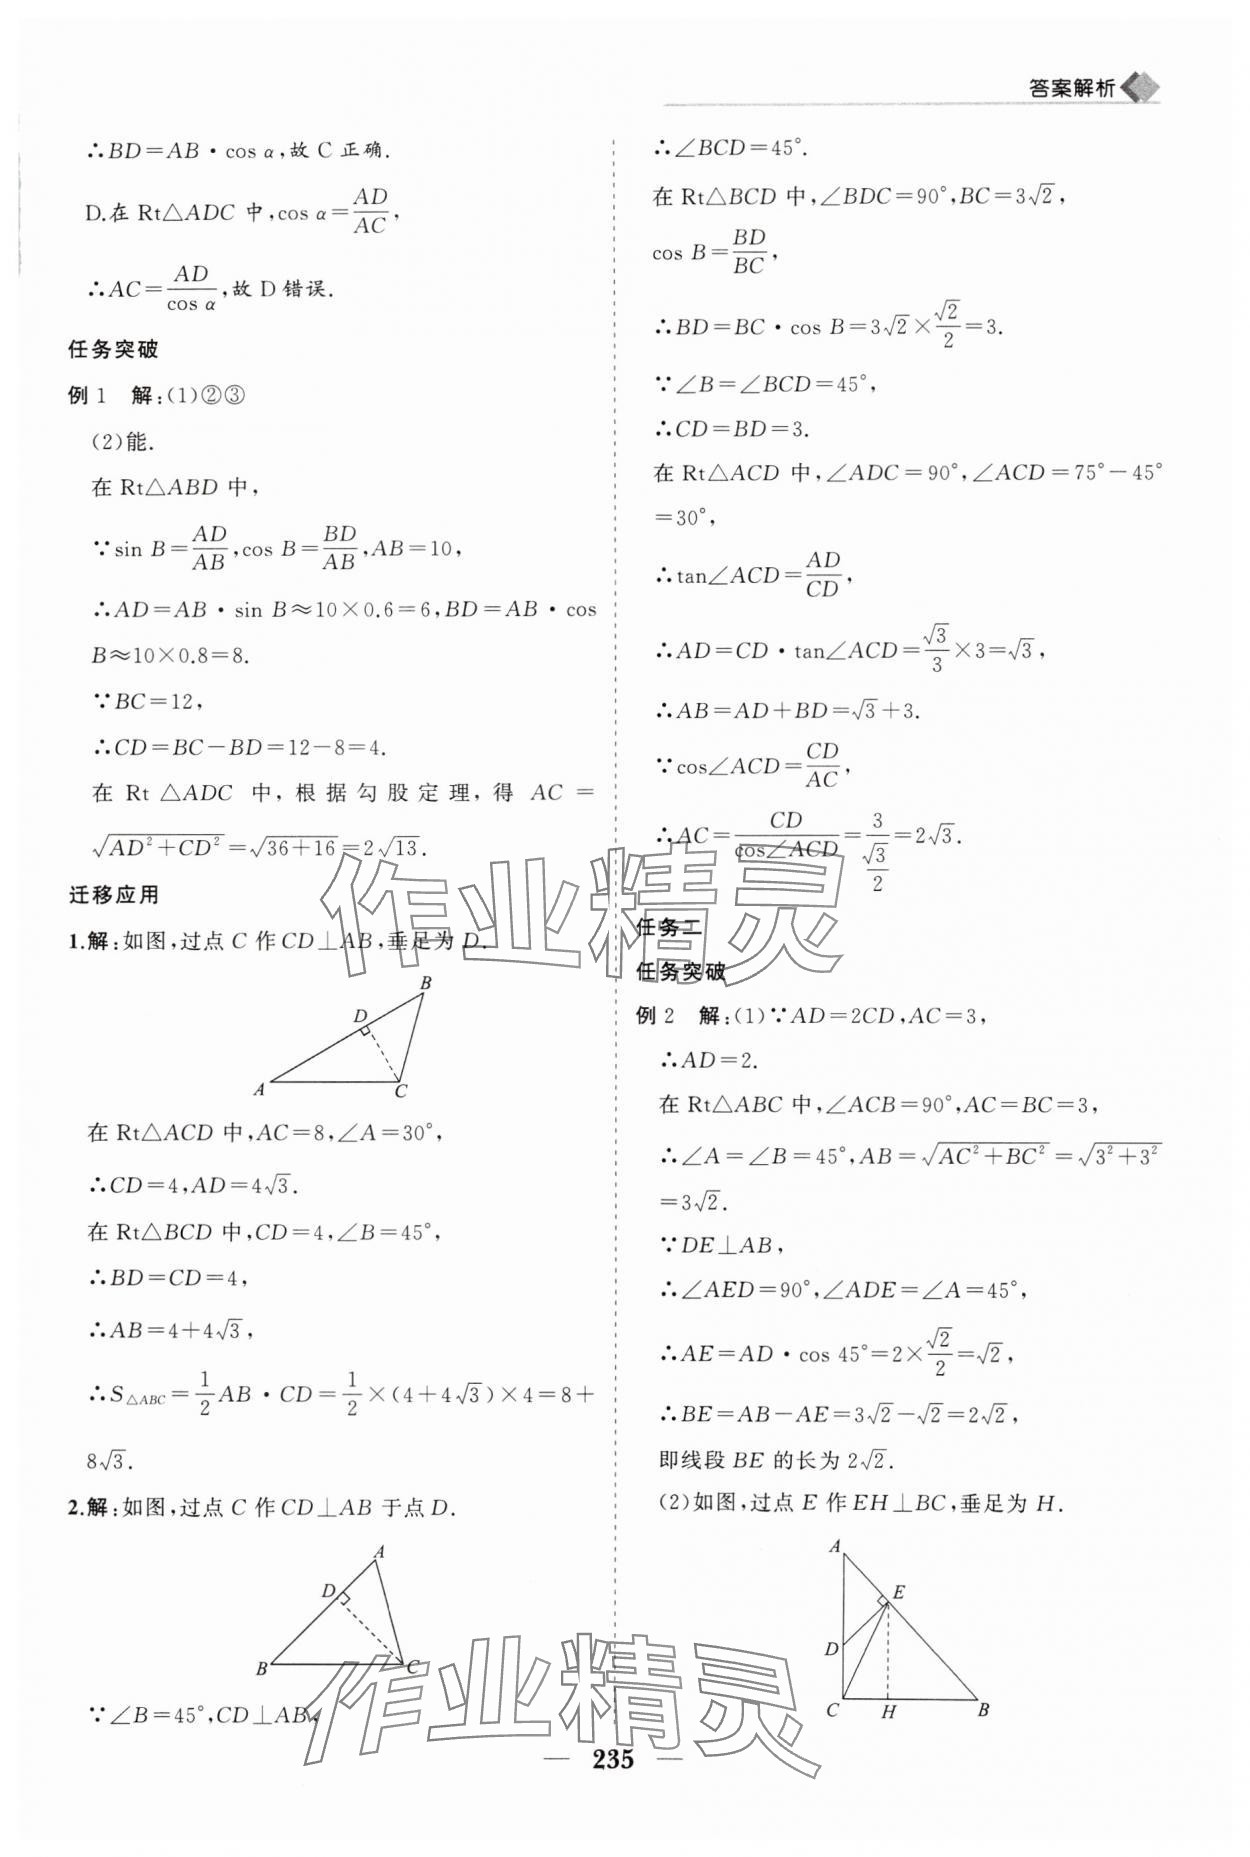 答案解析
∴BD=AB·cos α,故 C 正确.
D.在 Rt△ADC 中,cos α=AD/AC,
∴AC=AD/cos α,故 D 错误.
任务突破
例 1 解:(1)②③
(2)能.
在 Rt△ABD 中,
∵sin B=AD/AB,cos B=BD/AB,AB=10,
∴AD=AB·sin B≈10×0.6=6,BD=AB·cos
B≈10×0.8=8.
∵BC=12,
∴CD=BC-BD=12-8=4.
在 Rt △ADC 中,根据勾股定理,得 AC=
√(AD²+CD²)=√(36+16)=2√13.
迁移应用
1.解:如图,过点 C 作 CD⊥AB,垂足为 D.
B
D
A
C
在 Rt△ACD 中,AC=8,∠A=30°,
∴CD=4,AD=4√3.
在 Rt△BCD 中,CD=4,∠B=45°,
∴BD=CD=4,
∴AB=4+4√3,
∴S△ABC=1/2AB·CD=1/2×(4+4√3)×4=8+
8√3.
2.解:如图,过点 C 作 CD⊥AB 于点 D.
A
D
B
C
∵∠B=45°,CD⊥AB,
∴∠BCD=45°.
在 Rt△BCD 中,∠BDC=90°,BC=3√2,
cos B=BD/BC,
∴BD=BC·cos B=3√2×√2/2=3.
∵∠B=∠BCD=45°,
∴CD=BD=3.
在 Rt△ACD 中,∠ADC=90°,∠ACD=75°-45°
=30°,
∴tan∠ACD=AD/CD,
∴AD=CD·tan∠ACD=√3/3×3=√3,
∴AB=AD+BD=√3+3.
∵cos∠ACD=CD/AC,
∴AC=CD/cos∠ACD=3/(√3/2)=2√3.
任务二
任务突破
例 2 解:(1)∵AD=2CD,AC=3,
∴AD=2.
在 Rt△ABC 中,∠ACB=90°,AC=BC=3,
∴∠A=∠B=45°,AB=√(AC²+BC²)=√(3²+3²)
=3√2.
∵DE⊥AB,
∴∠AED=90°,∠ADE=∠A=45°,
∴AE=AD·cos 45°=2×√2/2=√2,
∴BE=AB-AE=3√2-√2=2√2,
即线段 BE 的长为 2√2.
(2)如图,过点 E 作 EH⊥BC,垂足为 H.
A
E
D
C
H
B
作业精灵
作业精灵
235